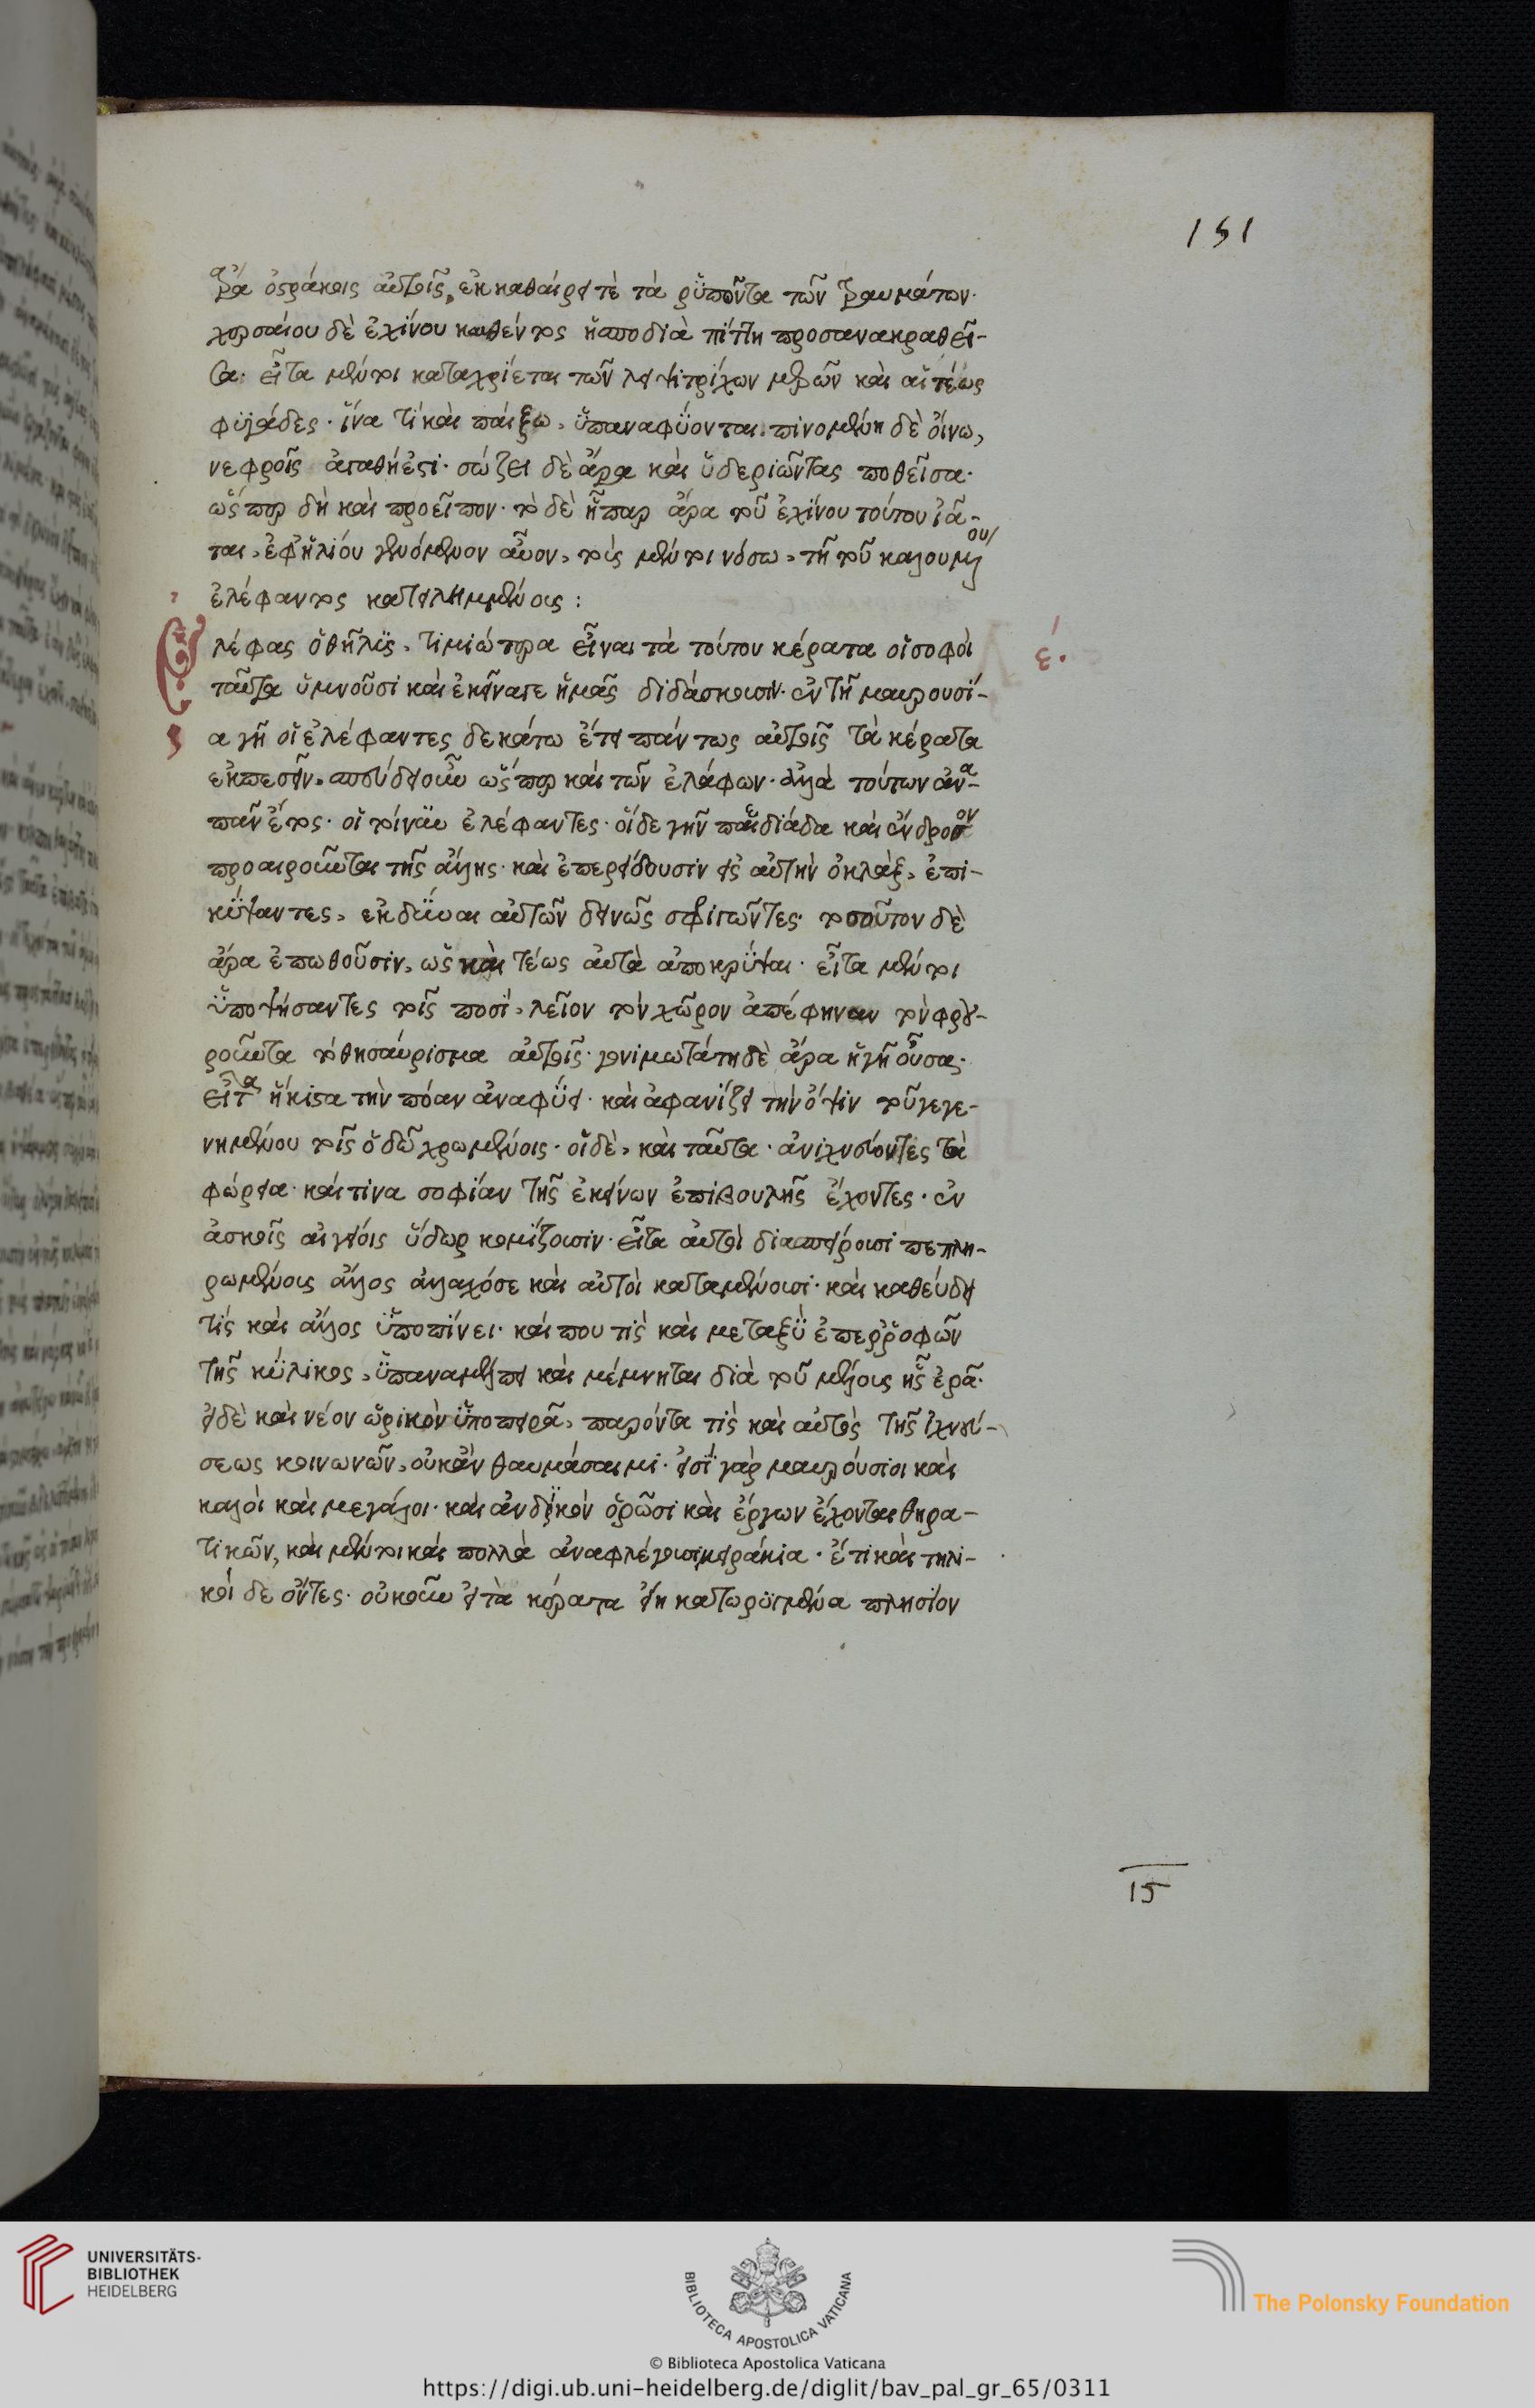 151
ὄστράκοις αὐτοῖς, ἐκκαθαίρει τὲ τὰ ῥυποῦντα τῶν τραυμάτων·
χερσαίου δὲ ἐχίνου καυθέντος ἡ σποδιὰ πίττη προσανακραθεῖ-
σα· εἶτα μέντοι καταχρίεται τῶν λειψιτρίχων μερῶν καὶ αἱ τέως
φυγάδες· ἵνα τὶ καὶ παίξω, ὑπαναφύονται. πινομένη δὲ οἴνω,
νεφροῖς ἀγαθή ἐστι· σώζει δὲ ἄρα καὶ ὑδεριῶντας ποθεῖσα·
ὥσπερ δὴ καὶ προεῖπον· τὸ δὲ ἧπαρ ἄρα τοῦ ἐχίνου τούτου ἰᾶ-
ται, ἐφ' ἡλίου γενόμενον αὖον, τοὺς μέντοι νόσω, τῆ τοῦ καλουμένου
ἐλέφαντος κατειλημμένους:
Ἐλέφας ὁ θῆλυς, τιμιώτερα εἶναι τὰ τούτου κέρατα οἱ σοφοὶ
ε·
ταῦτα ὑμνοῦσι καὶ ἐκεῖνά γε ἡμᾶς διδάσκουσιν· ἐν τῆ μαυρουσί-
α γῆ οἱ ἐλέφαντες δεκάτω ἔτει πάντως αὐτοῖς τὰ κέρατα
ἐκπεσεῖν, ὥσπερ καὶ τῶν ἐλάφων· ἀλλὰ τούτων ἀνὰ
πᾶν ἔτος· οἱ τοίνυν ἐλέφαντες· οἵδε γῆν πεδιάδα καὶ ἔνδροσον
προαιροῦνται τῆς ἄλλης· καὶ ἐπερείδουσιν εἰς αὐτὴν ὀκλὰξ, ἐπι-
κύψαντες, ἐκδῦναι αὐτῶν δεινῶς σφριγῶντες· τοσοῦτον δὲ
ἄρα ἐπωθοῦσιν, ὡς καὶ τέως αὐτὰ ἀποκρύψαι· εἶτα μέντοι
ὑποψήσαντες τοῖς ποσὶ, λεῖον τὸν χῶρον ἀπέφηναν τὸν φρου-
ροῦντα τὸ θησαύρισμα αὐτοῖς· γονιμωτάτη δὲ ἄρα ἡ γῆ οὖσα·
εἶτα ἥκιστα τὴν πόαν ἀναφύει· καὶ ἀφανίζει τὴν ὄψιν τοῦ γεγε-
νημένου τοῖς ὁδῶ χρωμένοις· οἱ δὲ, καὶ ταῦτα· ἀνιχνεύοντες τὰ
φώρεια· καί τινα σοφίαν τῆς ἐκείνων ἐπιβουλῆς ἔχοντες· ἐν
ἀσκοῖς αἰγείοις ὕδωρ κομίζουσιν· εἶτα αὐτοὶ διασπείρουσι πεπλη-
ρωμένοις ἄλλος ἀλλαχόσε καὶ αὐτοὶ καταμένουσι· καὶ καθεύδει
τὶς καὶ ἄλλος ὑποπίνει· καί που τὶς καὶ μεταξὺ ἐπερροφῶν
τῆς κύλικος, ὑπαναμέλπει καὶ μέμνηται διὰ τοῦ μέλους ἧς ἐρᾶ·
εἰ δὲ καὶ νέον ὡρικὸν ὑποπειρᾶ, παρόντα τὶς καὶ αὐτὸς τῆς ἰχνεύ-
σεως κοινωνῶν, οὐκ ἂν θαυμάσαιμι· εἰσὶ γὰρ μαυρούσιοι καὶ
καλοὶ καὶ μεγάλοι· καὶ ἀνδρικὸν ὁρῶσι καὶ ἔργων ἔχονται θηρα-
τικῶν, καὶ μέντοι καὶ πολλὰ ἀναφλέγουσι μειράκια· ἔτι καὶ τηλι-
κοίδε ὄντες· οὐκοῦν εἰ τὰ κέρατα εἴη κατωρυγμένα πλησίον
15
UNIVERSITÄTS-
BIBLIOTHEK
HEIDELBERG
BIBLIOTECA APOSTOLICA VATICANA
© Biblioteca Apostolica Vaticana
The Polonsky Foundation
https://digi.ub.uni-heidelberg.de/diglit/bav_pal_gr_65/0311